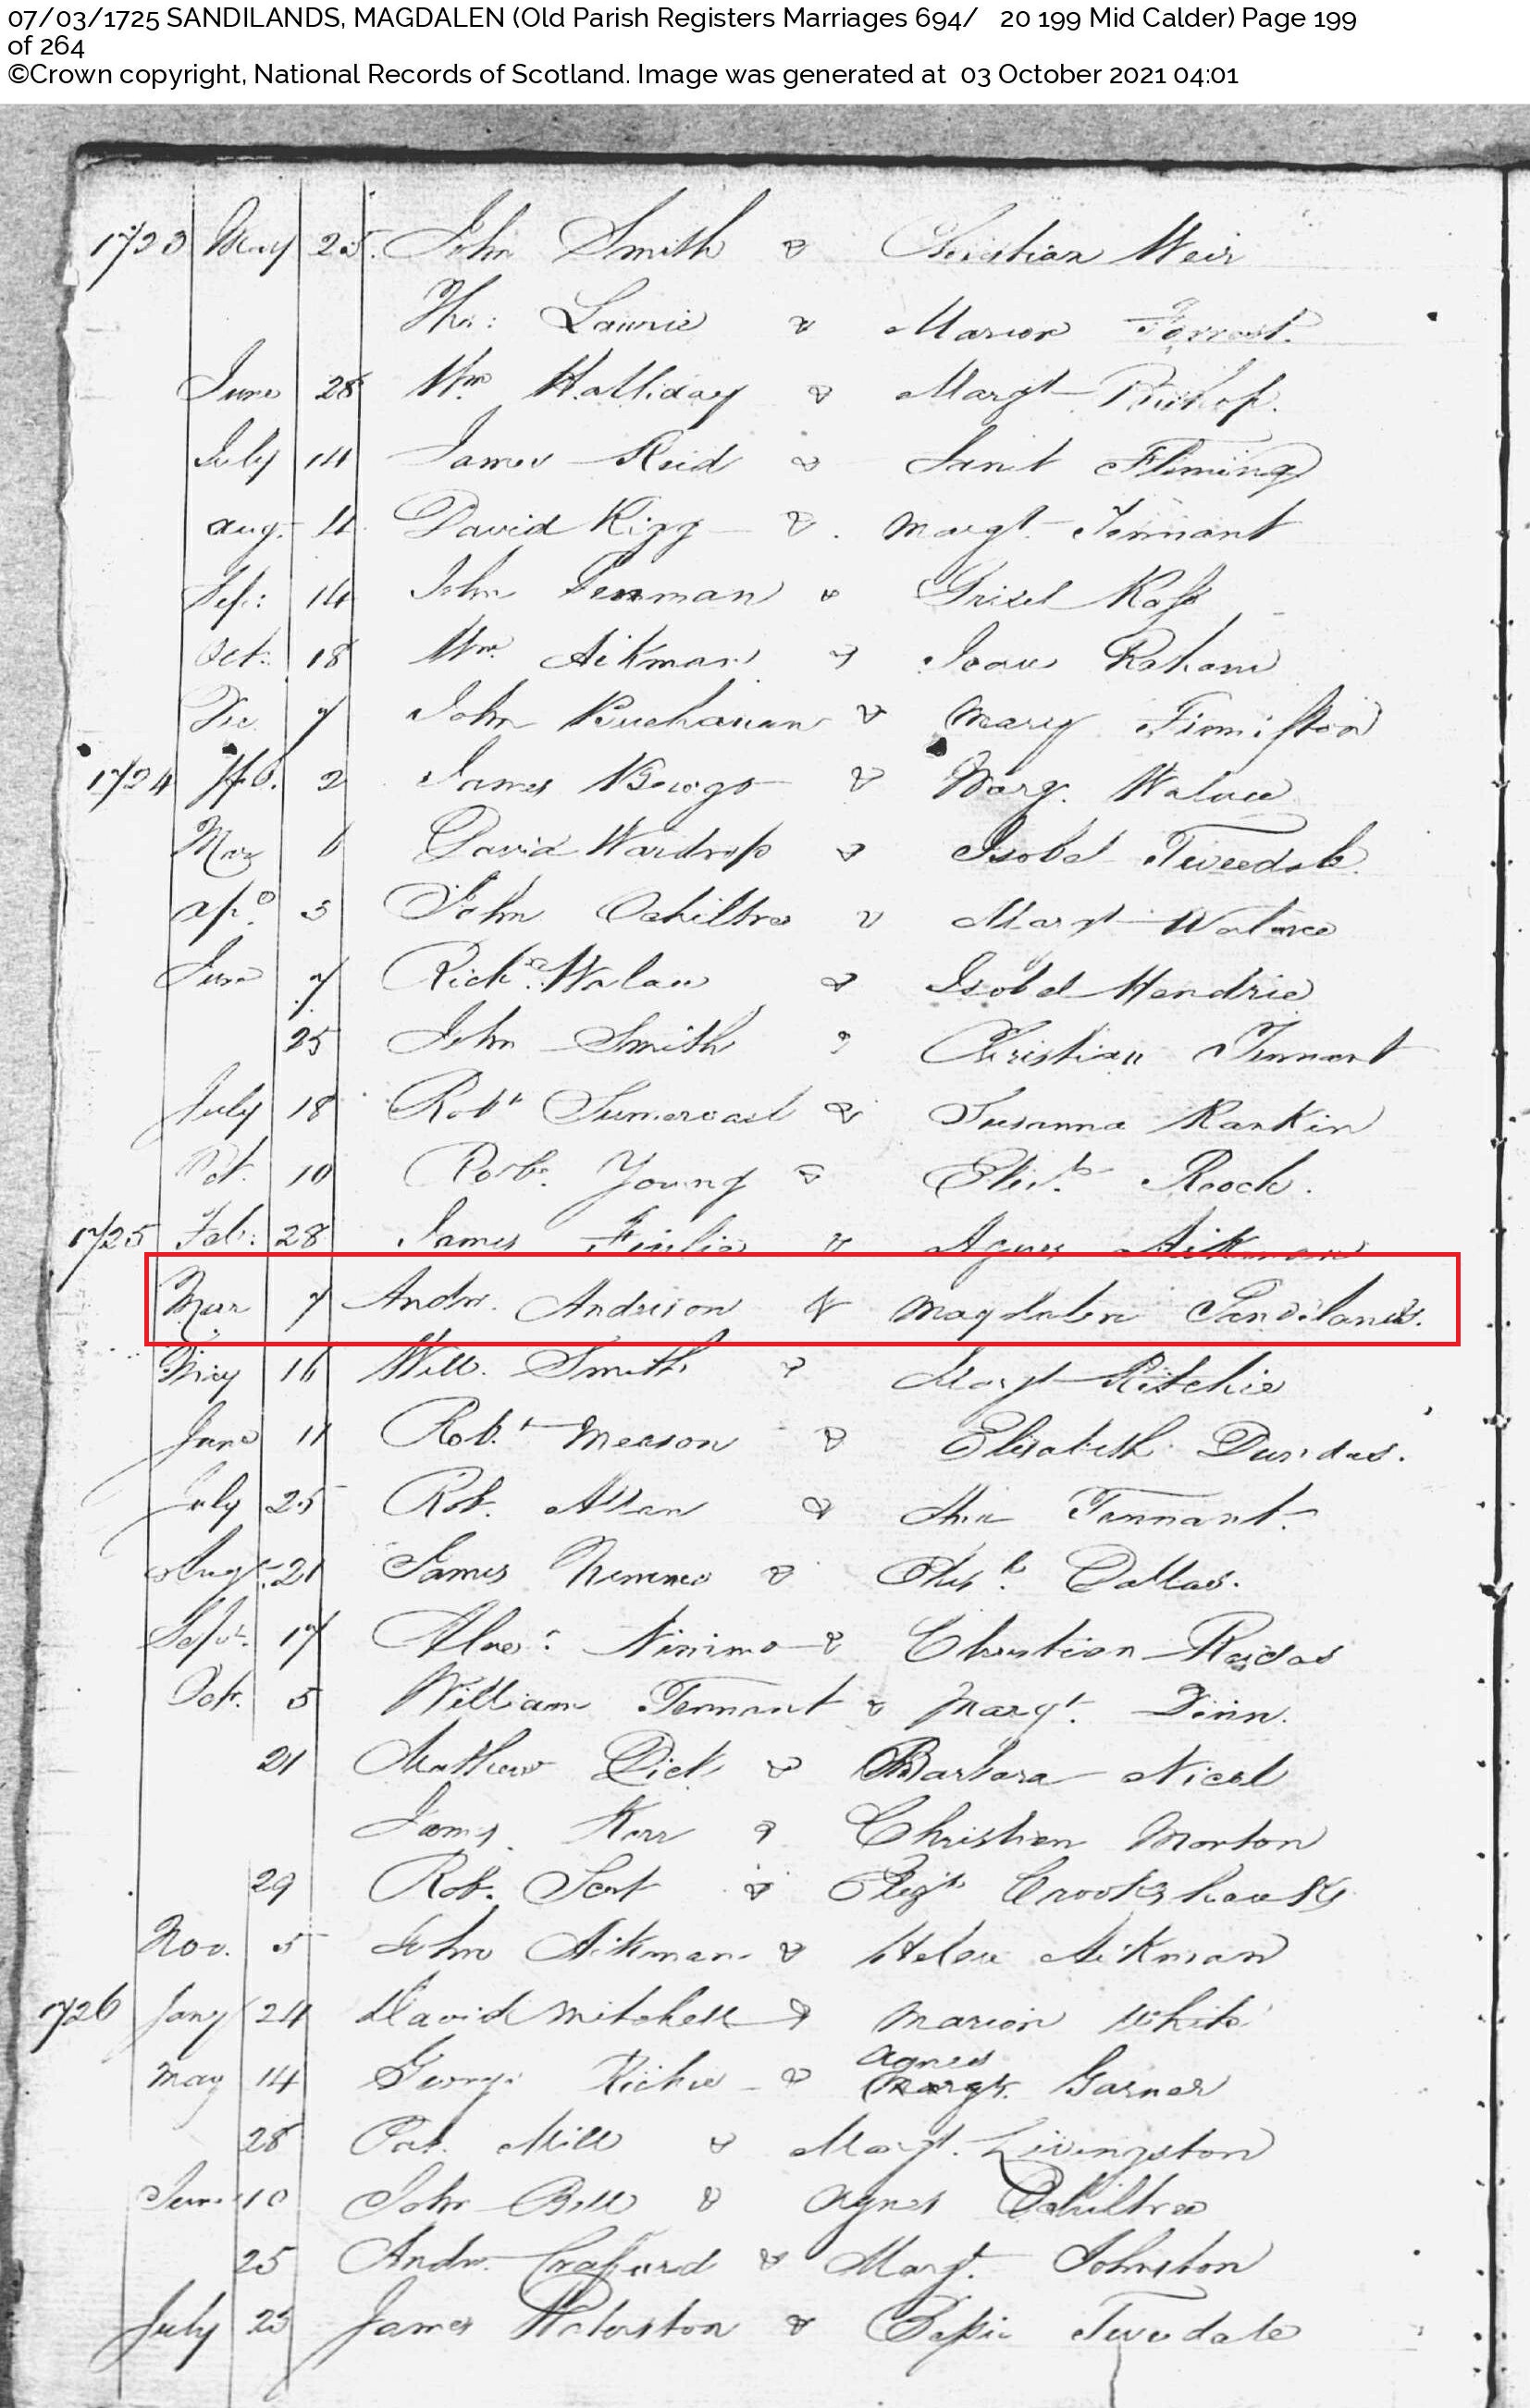 07/03/1725 SANDILANDS, MAGDALEN (Old Parish Registers Marriages 694/ 20 199 Mid Calder) Page 199
of 264
©Crown copyright, National Records of Scotland. Image was generated at 03 October 2021 04:01
1723 May 25. John Smith & Christian Weir
Tho: Laurie & Marion Forrest.
June 28 Wm Halliday & Margt Bishop.
July 14 James Reid & Janit Fliming
Aug. 11 David Kigg & Margt. Tennant
Sep: 14 John Penman & Grizel Ross
Oct. 18 Wm. Aikman & Raham
Dec. 7 John Buchanan & Mary
1724 2 James & Marg. Walace
Mar 6 David Wardrop & Isobel Tweedale
Ap. 3 John Ochiltree & Margt Walace
June 7 Richd. Walace & Isobel Hendrie
25 John Smith & Christian Tennant
July 18 Robt Sumervail & Susanna Rankin
Oct. 10 Rob. Young & Elizt. Roock.
1725 Feb: 28 James Finlie & Agnes Aikman
Mar 7 Andw. Andrson & Magdalen Sandilands.
May 16 Will. Smith & Margt Ritchie
June 11 Robt. Meason & Elisabeth Dundas.
July 25 Rob. Allan & Tennant.
Augt. 21 James Nimmo & Dallas.
Sept. 17 Alexr. Nimmo & Christian
Oct. 5 William Tennant & Margt. Dinn.
21 Mathew Dick & Barbara Nicol
James Kerr & Christian Morton
29 Rob. Scot & Crookshanks
Nov. 5 John Aikman & Helen Aikman
1726 Jany 24 David Mitchell & Marion White
Agnes
May 14 George Richie & Margt. Garner
28 Pat. Mill & Margt. Livingston
June 10 John Bell & Agnes Ochiltree
25 Andw. Craford & Margt. Johnston
July 23 James Waterston & Tweedale